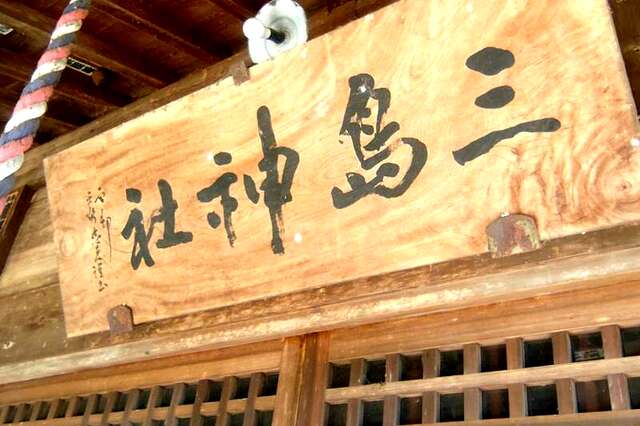 三島神社